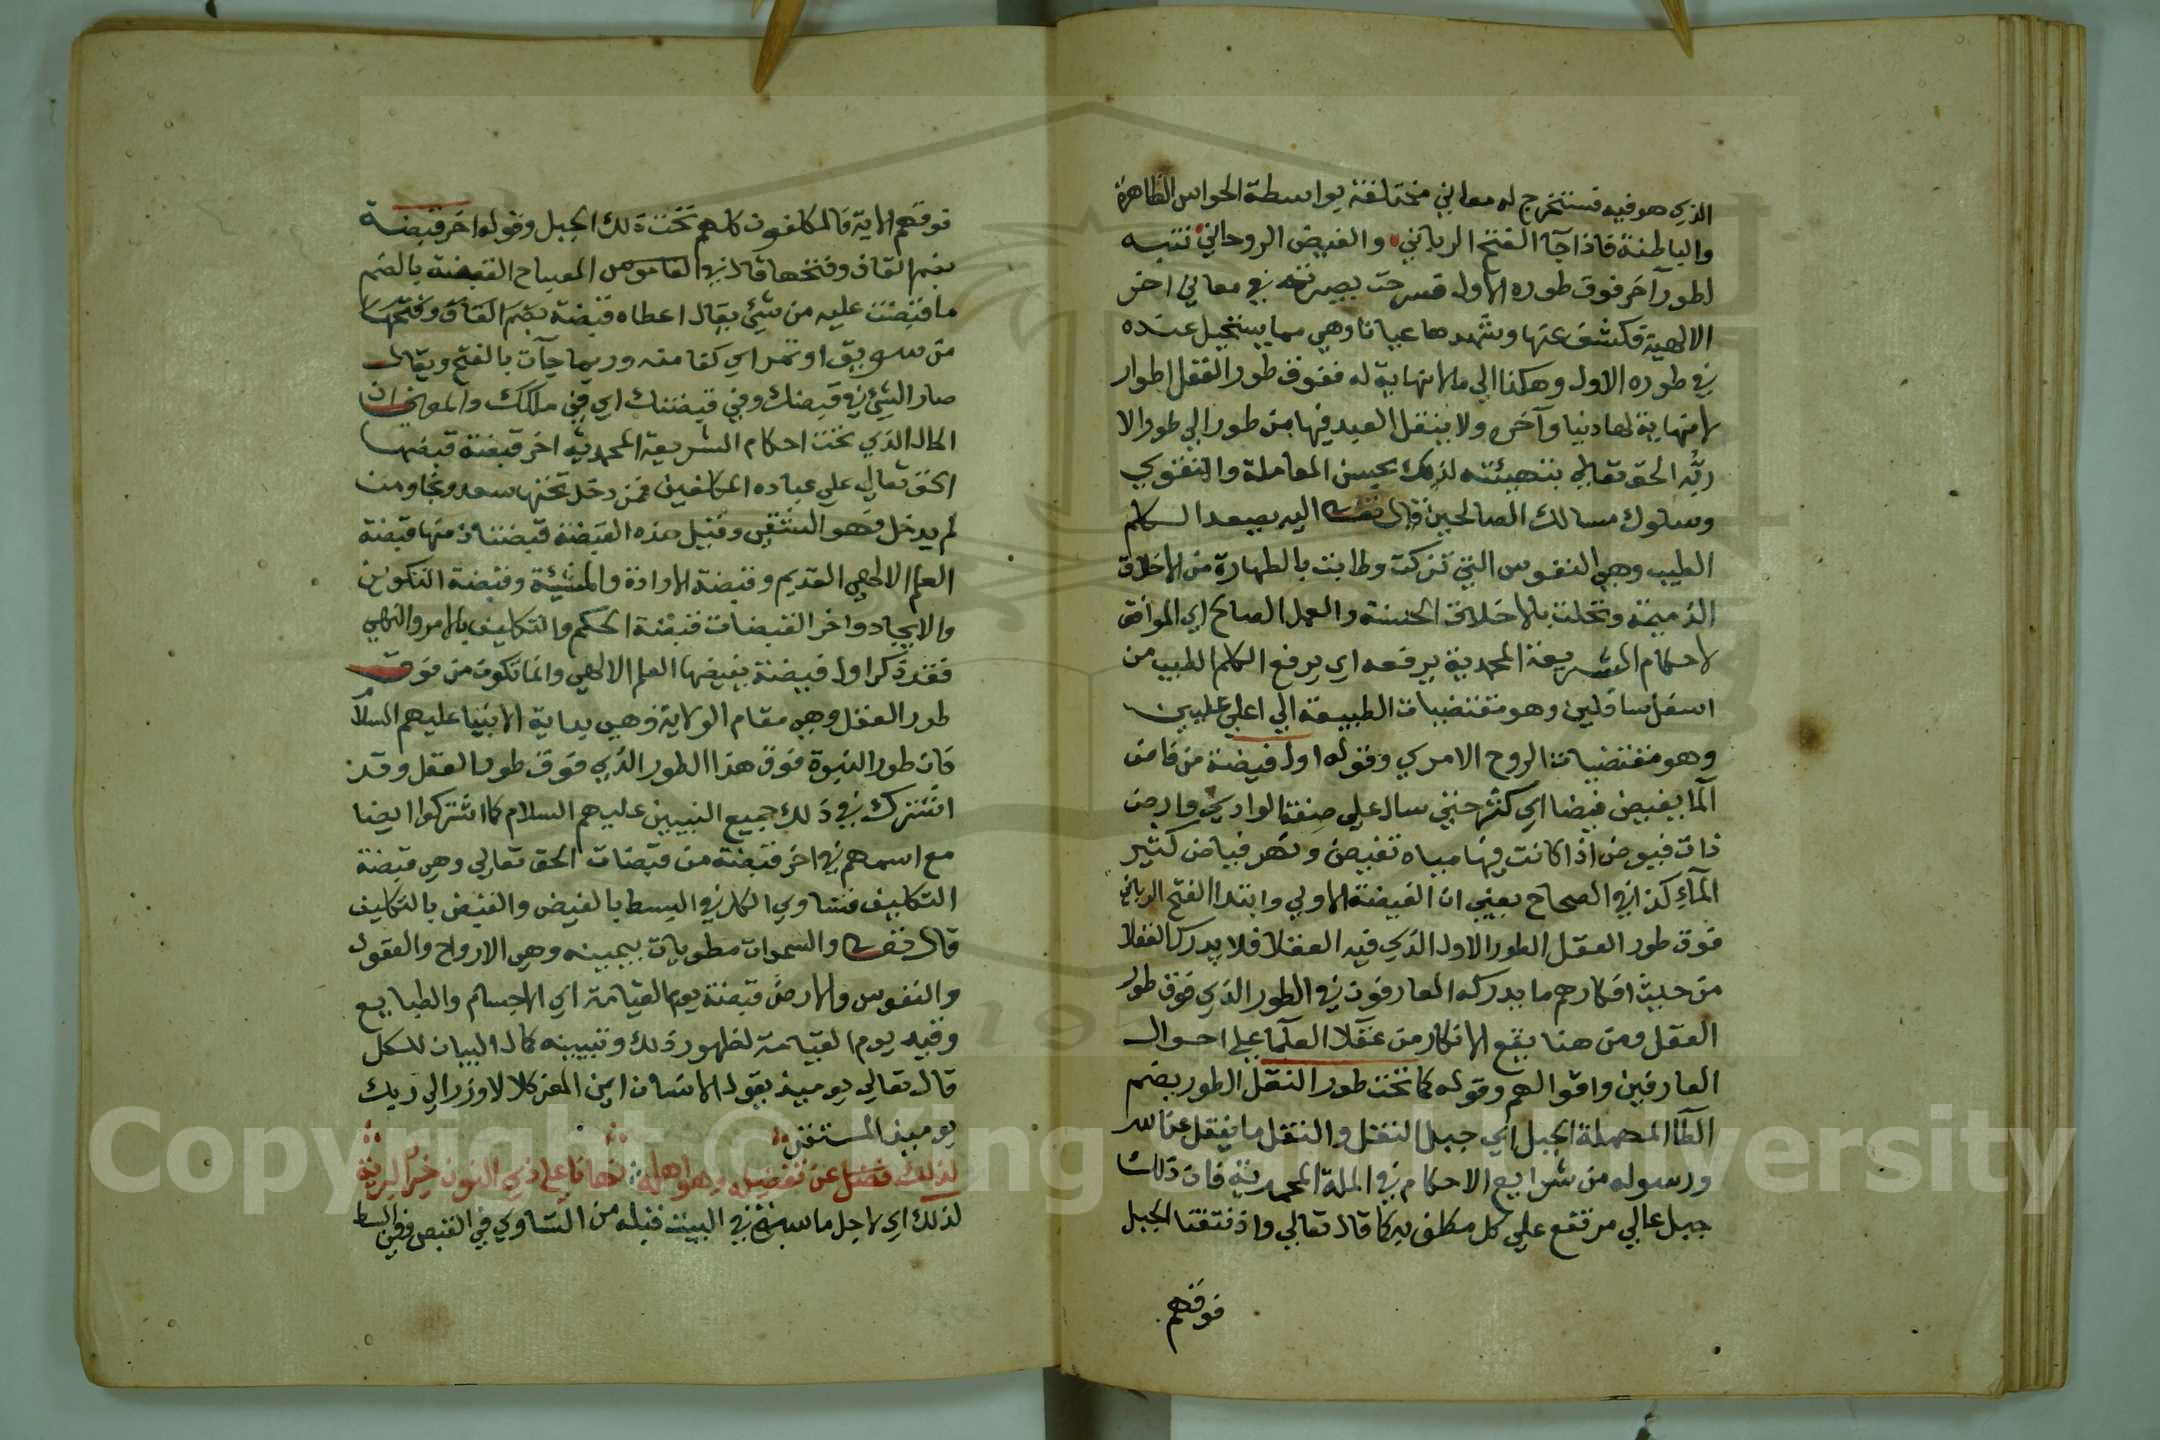 الذي هو فيه فتستخرج له معاني مختلفة بواسطة الحواس الظاهرة
والباطنة فاذا جآ الفتح الرباني والفيض الروحاني تنبه
لطور آخر فوق طوره الاول فسرحت بصيرته في معاني اخر
الالهية فكشف عنها وشهدها عيانا وهي مما يستحيل عنده
في طوره الاول وهكذا الي ما لا نهاية له ففوق طور العقل اطوار
لا نهاية لها دنيا وآخره ولا ينتقل العبد فيها من طور الي طور الا
ربه الحق تعالي بتهيئته لذلك بحسن المعاملة والتقوي
وسلوك مسالك الصالحين قال تعالى اليه يصعد الكلم
الطيب وهي النفوس التي تزكت وطابت بالطهارة من الاخلاق
الذميمة وتحلت بالاخلاق الحسنة والعمل الصالح اي الموافق
لاحكام الشريعة المحمدية يرفعه اي يرفع الكلم الطيب من
اسفل سافلين وهو مقتضيات الطبيعة الي اعلي عليين
وهو مقتضيات الروح الامري وقوله اول فيضة من فاض
المآ يفيض فيضا اي كثر حتي سال علي ضفة الوادي وارض
ذات فيوض اذا كانت فيها مياه تفيض ونهر فياض كثير
المآء كذا في الصحاح يعني ان الفيضة الاولي وابتدا الفتح الرباني
فوق طور العقل الطور الاول الذي فيه العقلا فلا يدرك العقلا
من حيث افكارهم ما يدركه العارفون في الطور الذي فوق طور
العقل ومن هنا يقع الانكار من عقلا العلما علي احوال
العارفين واقوالهم وقوله كما تحت طور النقل الطور بضم
الطآ المهملة الجبل اي جبل النقل والنقل ما ينقل عن الله
ورسوله من شرايع الاحكام في الملة المحمدية فان ذلك
جبل عالي مرتفع علي كل مكلف به كما قال تعالي واذ نتقنا الجبل
فوقهم
فوقهم الاية فالمكلفون كلهم تحت ذلك الجبل وقوله اخر قبضة
بضم القاف وفتحها قال في القاموس المصباح القبضة بالضم
ما قبضت عليه من شيئ يقال اعطاه قبضة بضم القاف وفتحها
من سويق او تمر اي كفا منه وربما جآت بالفتح ويقال
صار الشيئ في قبضك وفي قبضتك اي في ملكك والمعني ان
الحال الذي تحت احكام الشريعة المحمدية اخر قبضة قبضها
الحق تعالي علي عباده المكلفين فمن دخل تحتها سعد ونجا ومن
لم يدخل فهو الشقي وقبل هذه القبضة قبضتان منها قبضة
العلم الالهي القديم وقبضة الارادة والمشيئة وقبضة التكوين
والايجاد واخر القبضات قبضة الحكم والتكليف بالامر والنهي
فقد ذكر اول فيضة يفيضها العلم الالهي وانما تكون من فوق
طور العقل وهي مقام الولاية وهي بداية الانبيا عليهم السلام
فان طور النبوة فوق هذا الطور الذي فوق طور العقل وقد
اشترك في ذلك جميع النبيين عليهم السلام كما اشتركوا ايضا
مع اسمهم في اخر قبضة من قبضات الحق تعالي وهي قبضة
التكليف فتساوي الكل في البسط بالفيض والقبض بالتكليف
قال تعالى والسموات مطويات بيمينه وهي الارواح والعقول
والنفوس والارض قبضته يوم القيامة اي الاجسام والطبايع
وقيد يوم القيامة لظهور ذلك وتبيينه كمال البيان للكل
قال تعالي يوميذ يقول الانسان اين المفر كلا لا وزر الي ربك
يوميذ المستقر
لذلك فضل عن تفضيله وهو اهله نهانا علي ذي النون خير البرية
لذلك اي لاجل ما سبق في البيت قبله من التساوي في القبض وفي البسط
Copyright © King Saud University